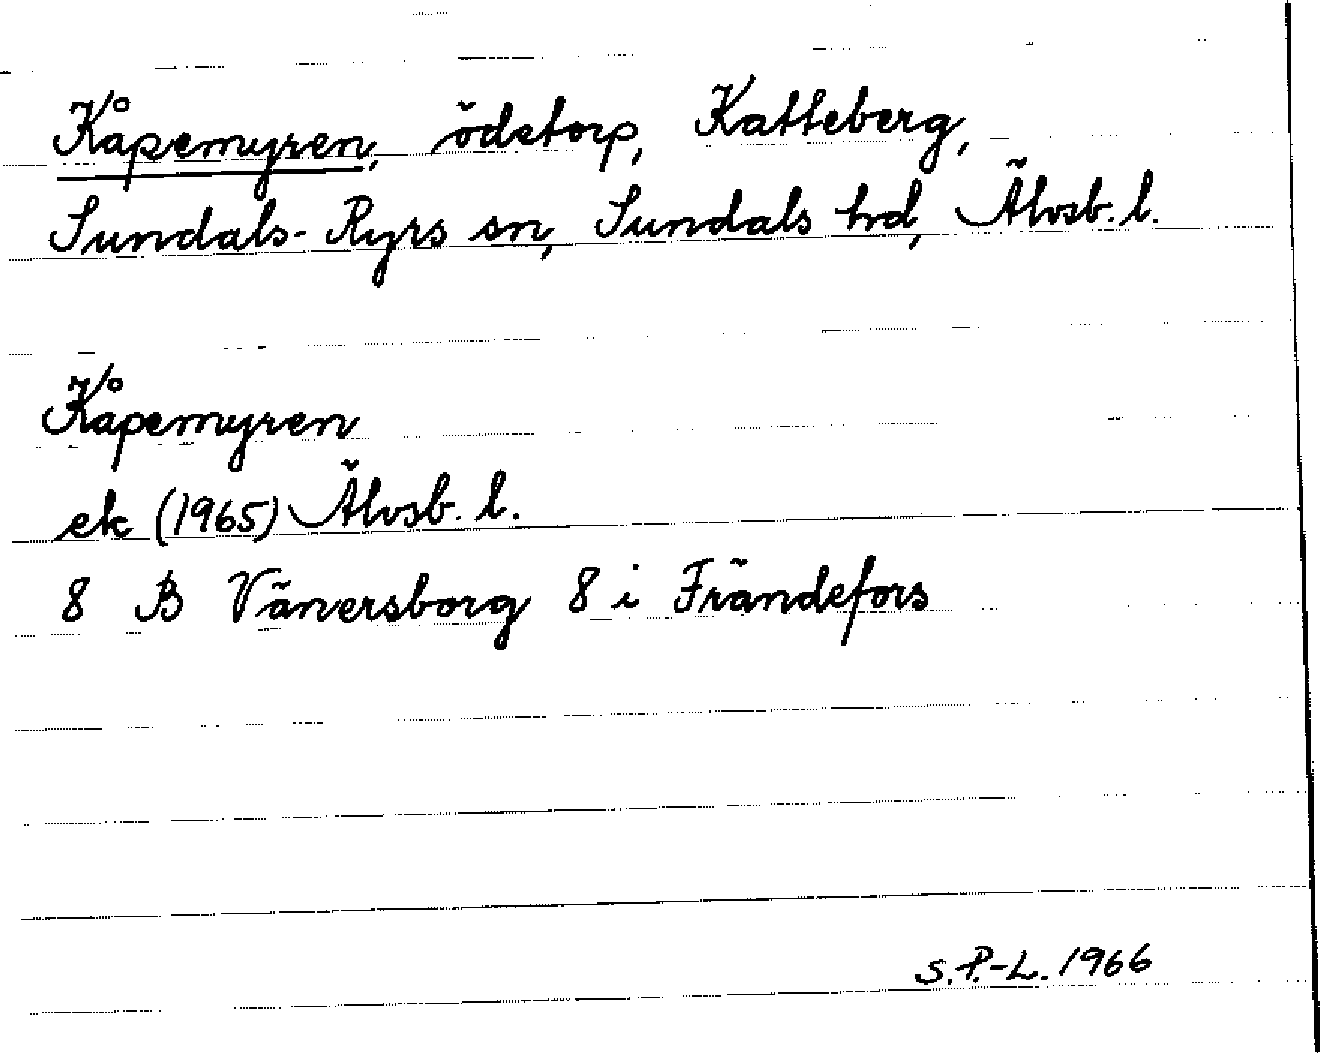 Kåpemyren, ödetorp, Katteberg,
Sundals-Ryrs sn, Sundals hd, Älvsb. l.
Kåpemyren
ek (1965) Älvsb. l.
8 B Vänersborg 8 i Frändefors
S. P.-L. 1966